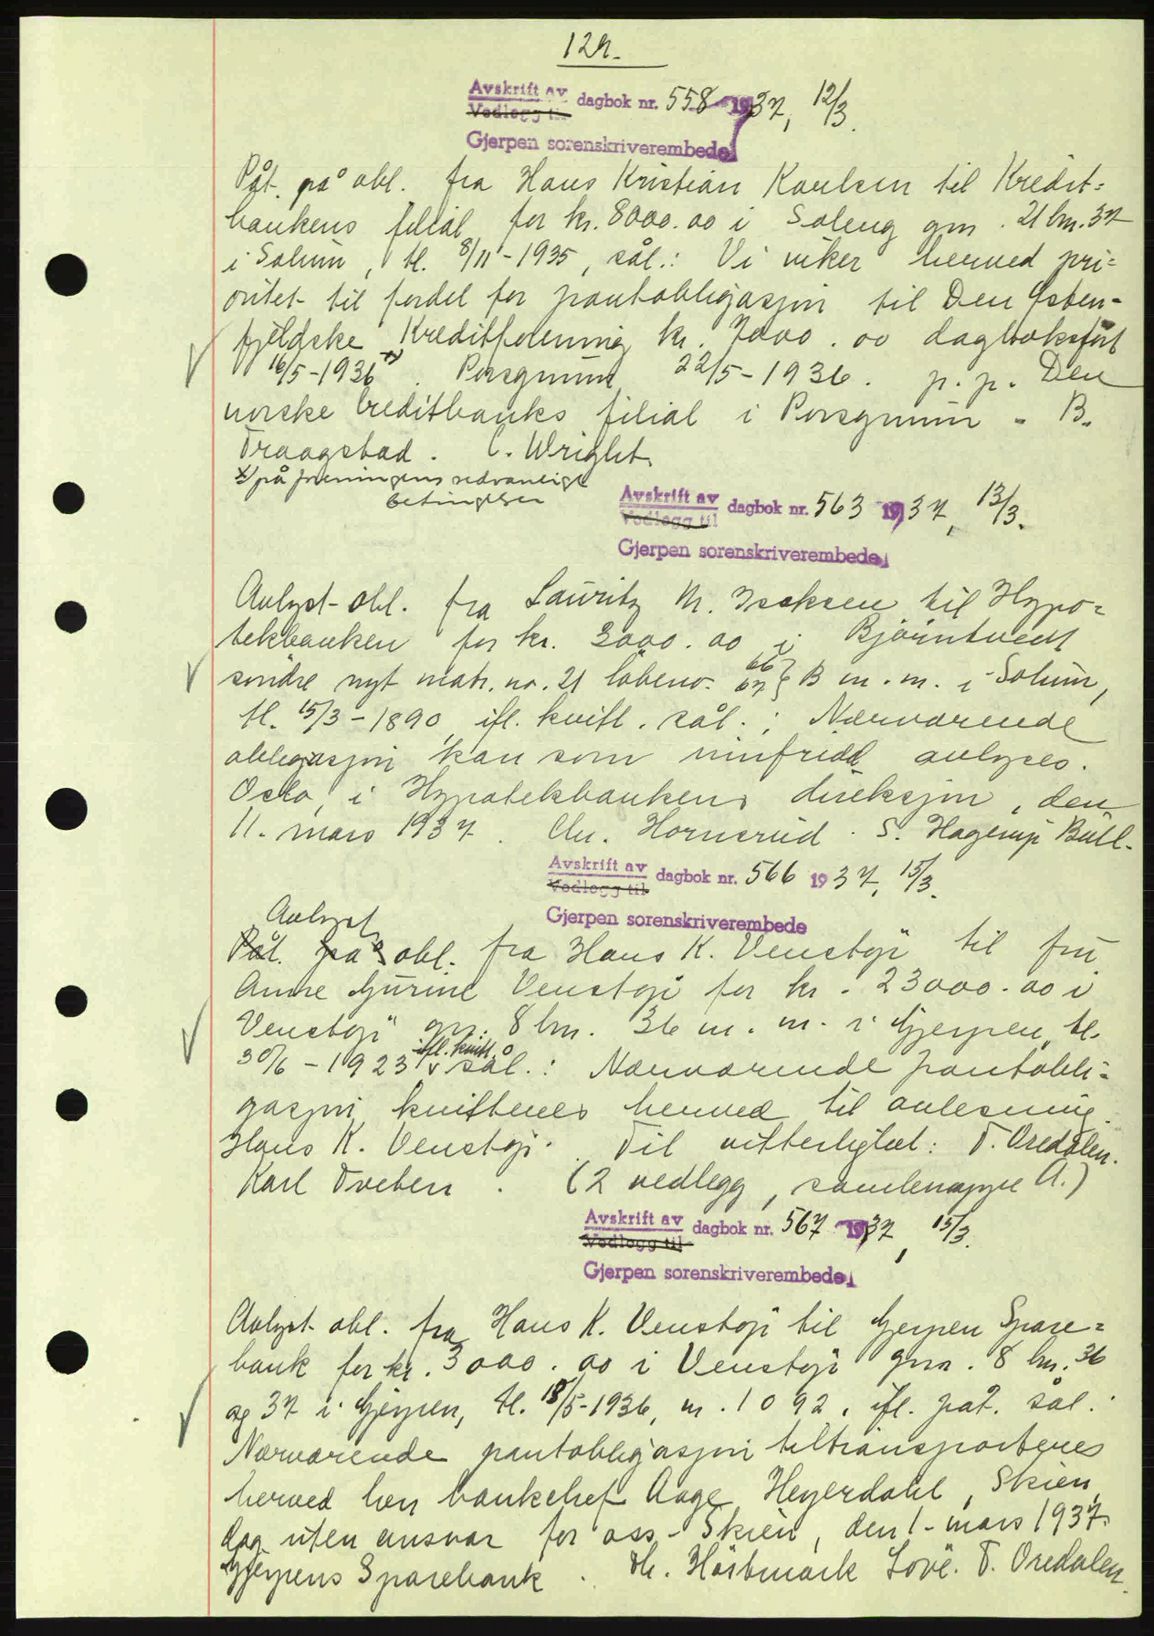 129.
Avskrift av dagbok nr. 558 1937, 12/3.
Vedlegg til
Gjerpen sorenskriverembede
Påt. på obl. fra Hans Kristian Karlsen til Kredit=
bankens filial for kr. 8000.00 i Soleng gnr. 21 bnr. 37
i Solum, tl. 8/11-1935, sål.: Vi viker herved pri=
oritet til fordel for pantobligasjon til Den Østen-
fjeldske Kreditforening kr. 7000.00 dagboksført
16/5-1936 x). Porsgrunn 22/5-1936. p.p. Den
norske Creditbanks filial i Porsgrunn - B.
Traagstad. C. Wright.
x) på foreningens sedvanlige
betingelser
Avskrift av dagbok nr. 563 1937, 13/3.
Vedlegg til
Gjerpen sorenskriverembede
Avlyst obl. fra Lauritz M. Isaksen til Hypo=
tekbanken for kr. 3000.00 i Bjørntvedt
søndre nyt matr. no. 21 løbeno. 66 67 } B m.m. i Solum,
tl. 15/3-1890, ifl. kvitt. sål.: Nærværende
obligasjon kan som innfridd avlyses.
Oslo, i Hypotekbankens direksjon, den
11. mars 1937. Chr. Hornsrud. S. Hagerup Bull.
Avskrift av dagbok nr. 566 1937, 15/3.
Vedlegg til
Gjerpen sorenskriverembede
Avlyst
Påt. på obl. fra Hans K. Venstøp til fru
Anne Gurine Venstøp for kr. 23000.00 i
Venstøp gnr. 8 bnr. 36 m.m. i Gjerpen, tl.
30/6-1923 ifl. kvitt. sål.: Nærværende pantobli=
gasjon kvitteres herved til avlesning.
Hans K. Venstøp. Til vitterlighet: T. Oredalen.
Karl Tveten. (2 vedlegg, samlemappe A.)
Avskrift av dagbok nr. 567 1937, 15/3.
Vedlegg til
Gjerpen sorenskriverembede
Avlyst obl. fra Hans K. Venstøp til Gjerpen Spare=
bank for kr. 3000.00 i Venstøp gnr. 8 bnr. 36
og 37 i Gjerpen, tl. 18/5-1936, nr. 1092. ifl. påt. sål.:
Nærværende pantobligasjon tiltransporteres
herved herr banksjef Aage Heyerdahl, Skien,
dog uten ansvar for oss - Skien, den 1. mars 1937.
Gjerpens Sparebank. Th. Høstmark Love. T. Oredalen.